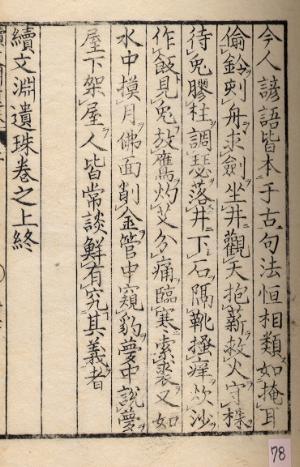 今人諺語皆本于古句法恒相類如掩耳
偷鈴刻舟求劍坐井觀天抱薪救火守株
待兎膠柱調瑟落井下石隔靴搔痒炊沙
作飯見兎放鷹灼艾分痛臨寒索裘又如
水中摸月佛面削金管中窺豹夢中說夢
屋下架屋人皆常談鮮有究其義者
續文淵遺珠卷之上終
78